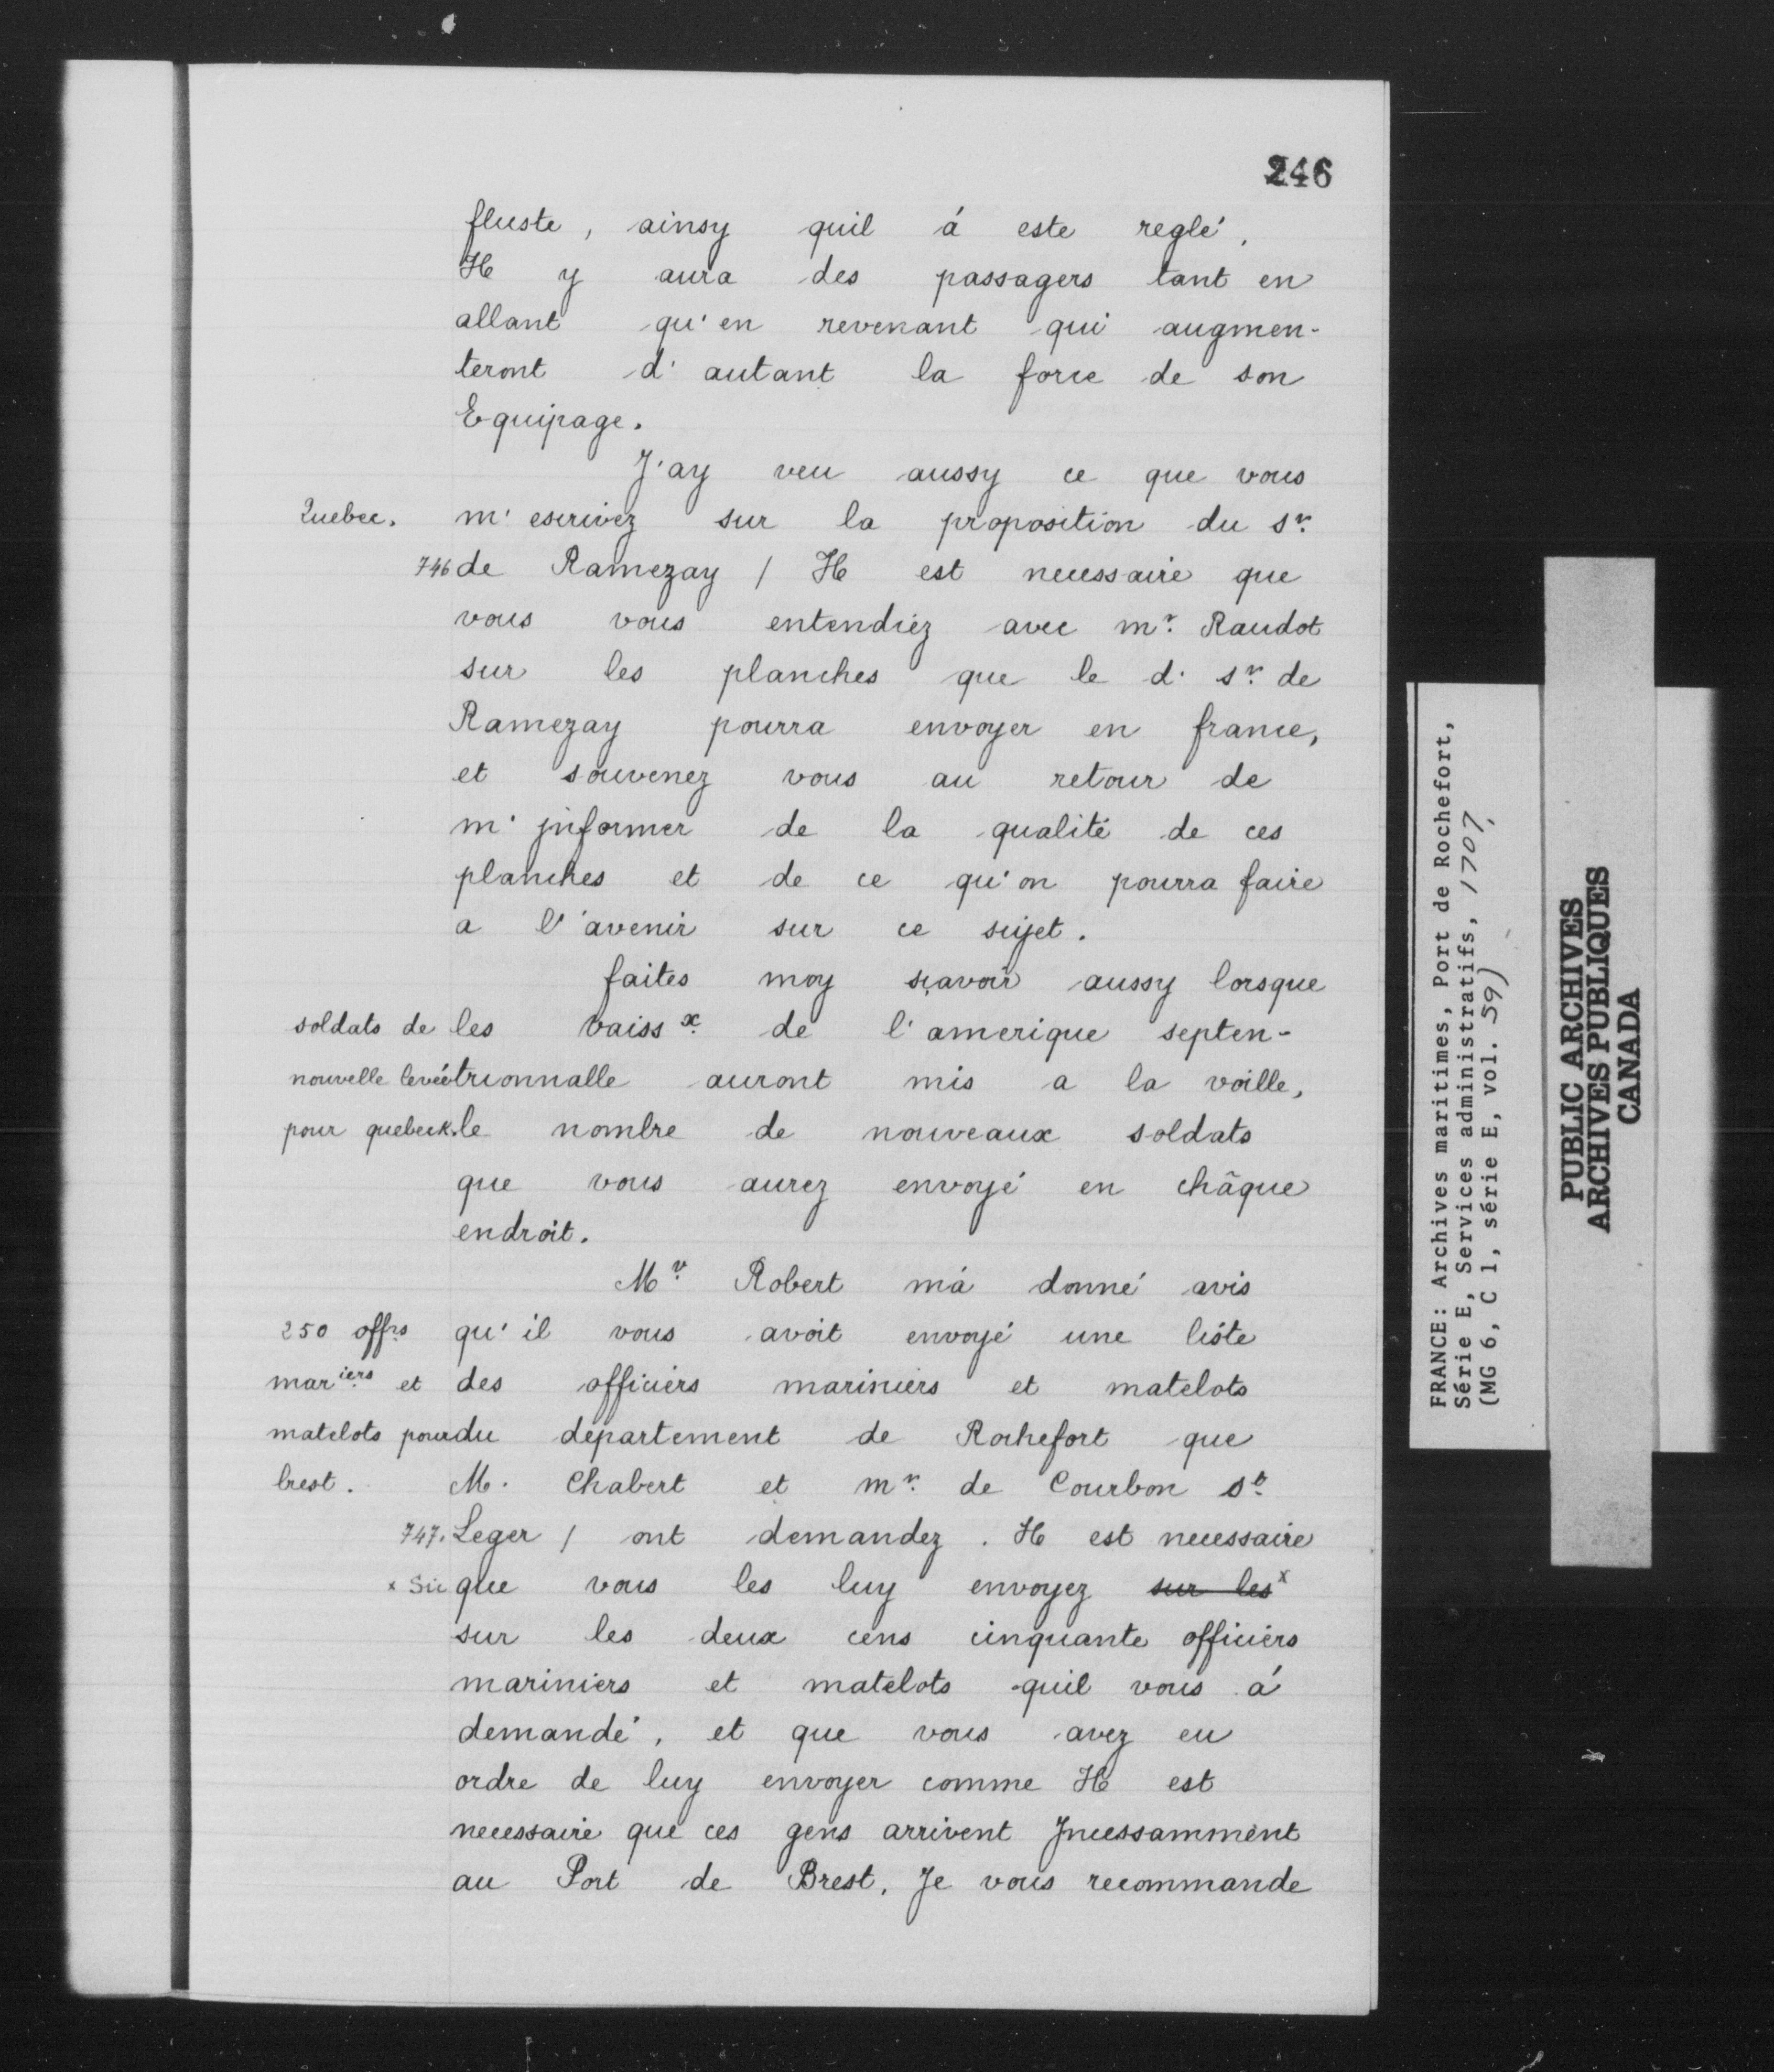 246
fluste, ainsy quil á este reglé,
Il y aura des passagers tant en
allant qu'en revenant qui augmen-
teront d'autant la force de son
Equipage.
J'ay veu aussy ce que vous
Quebec. m'escrivez sur la proposition du sr.
746 de Ramezay / Il est necessaire que
vous vous entendiez avec mr. Raudot
sur les planches que le d. sr. de
Ramezay pourra envoyer en france,
et souvenez vous au retour de
m'jnformer de la qualité de ces
planches et de ce qu'on pourra faire
a l'avenir sur ce sujet.
faites moy sçavoir aussy lorsque
soldats de les vaissx. de l'amerique septen-
nouvelle levée trionnalle auront mis a la voille,
pour quebeck. le nombre de nouveaux soldats
que vous aurez envoyé en châque
endroit.
Mr. Robert má donné avis
250 offrs qu'il vous avoit envoyé une liste
mariers et des officiers mariniers et matelots
matelots pour du departement de Rochefort que
brest. M. Chabert et mr. de Courbon st.
747. Leger / ont demandez. Il est necessaire
x Sic que vous les luy envoyez sur les x
sur les deux cens cinquante officiers
mariniers et matelots quil vous á
demandé, et que vous avez eu
ordre de luy envoyer comme Il est
necessaire que ces gens arrivent Jncessamment
au Port de Brest, Je vous recommande
FRANCE: Archives maritimes, Port de Rochefort,
Série E, Services administratifs, 1707,
(MG 6, C 1, série E, vol. 59)
PUBLIC ARCHIVES
ARCHIVES PUBLIQUES
CANADA